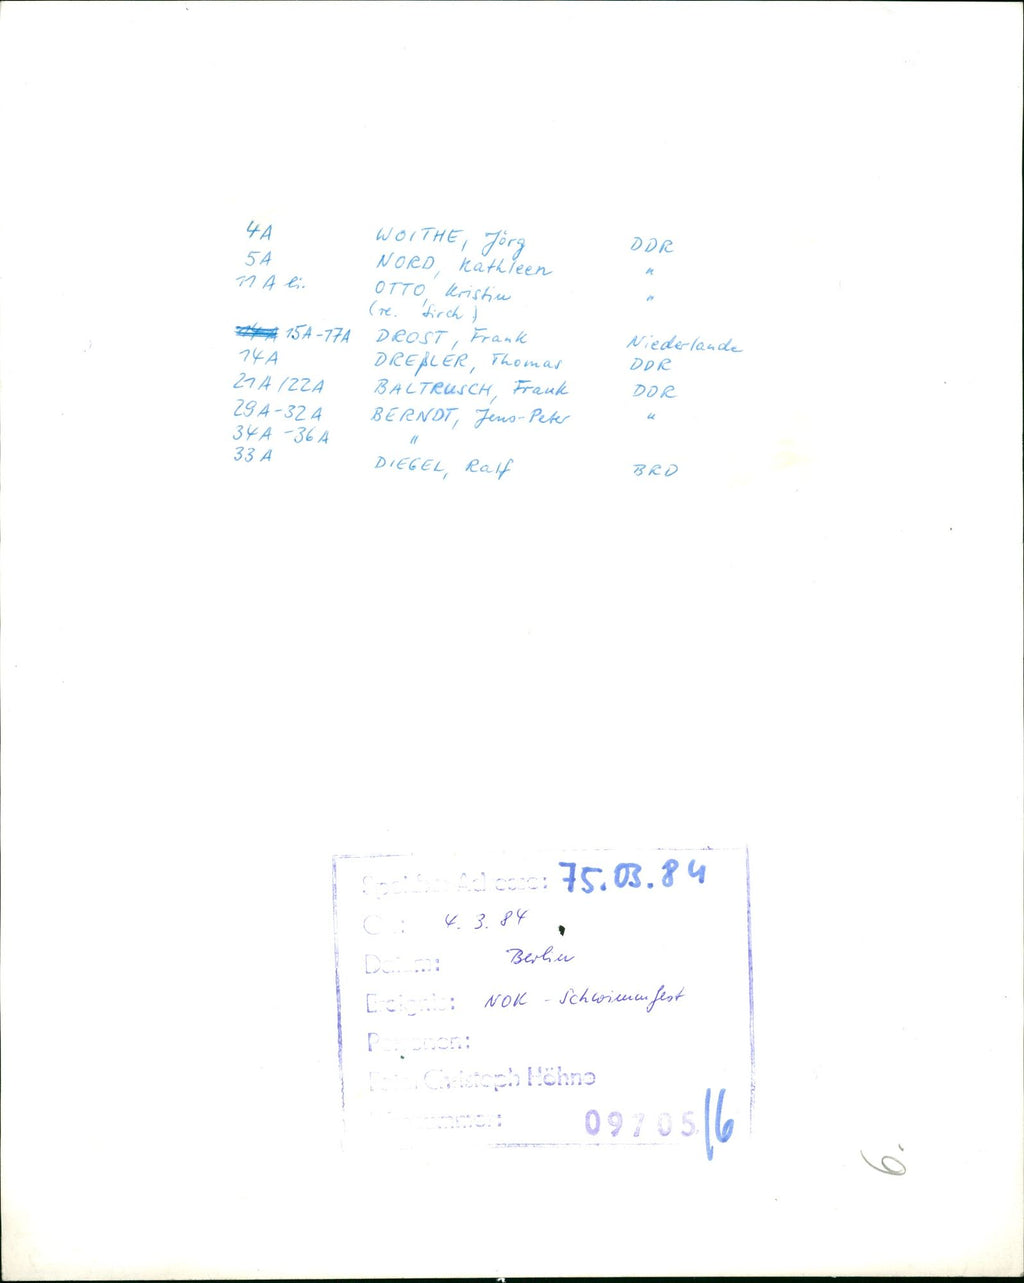 4A WOITHE, Jörg DDR
5A NORD, Kathleen "
11A li. OTTO, Kristin "
(re. Sirch)
15A-17A DROST, Frank Niederlande
14A DREßLER, Thomas DDR
21A/22A BALTRUSCH, Frank DDR
29A-32A BERNDT, Jens-Peter "
34A-36A "
33A DIEGEL, Ralf BRD
Speicher-Adresse: 75.03.84
Ort: 4.3.84
Datum: Berlin
Ereignis: NOK - Schwimmfest
Personen:
Foto: Christoph Höhne
09705/6
6.